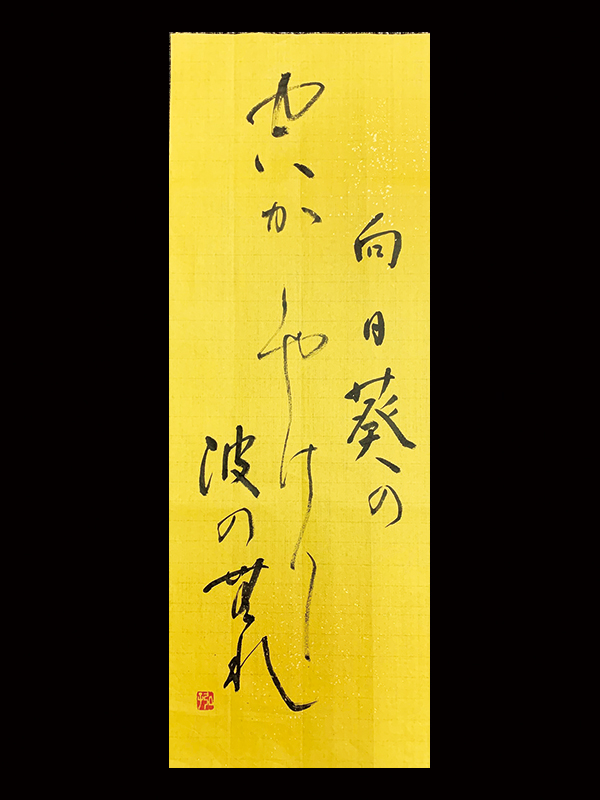 向日葵の
空かゝやけり
波の無れ